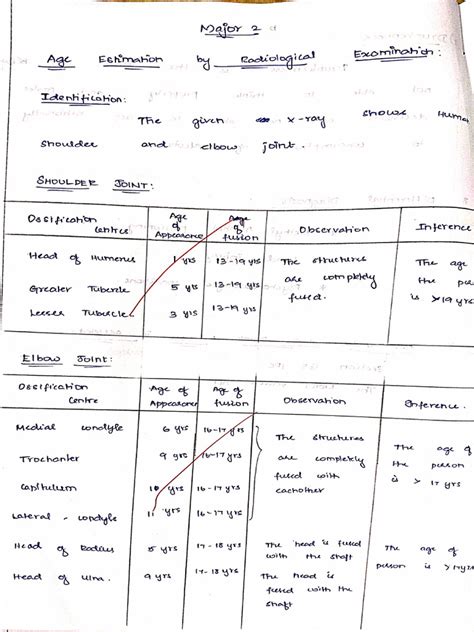 Major 2
Age Estimation by Radiological Examination:
Identification:
The given x-ray shows Human
shoulder and elbow joint.
SHOULDER JOINT:
Ossification Centre | Age of Appearance | Age of fusion | Observation | Inference
Head of Humerus | 1 yrs | 13-19 yrs | The structures are completely fused. | The age
Greater Tubercle | 5 yrs | 13-19 yrs | the
Lesser Tubercle | 3 yrs | 13-19 yrs | is >19 yrs
Elbow Joint:
Ossification Centre | Age of Appearance | Age of fusion | Observation | Inference.
Medial condyle | 6 yrs | 16-17 yrs | The structures are completely fused with eachother | The age of the person is > 17 yrs
Trochanter | 9 yrs | 16-17 yrs
Capitulum | 10 yrs | 16-17 yrs
Lateral condyle | 11 yrs | 16-17 yrs
Head of Radius | 5 yrs | 17-18 yrs | The head is fused with the shaft | The age of person is >17yrs
Head of Ulna. | 9 yrs | 17-18 yrs | The head is fused with the shaft